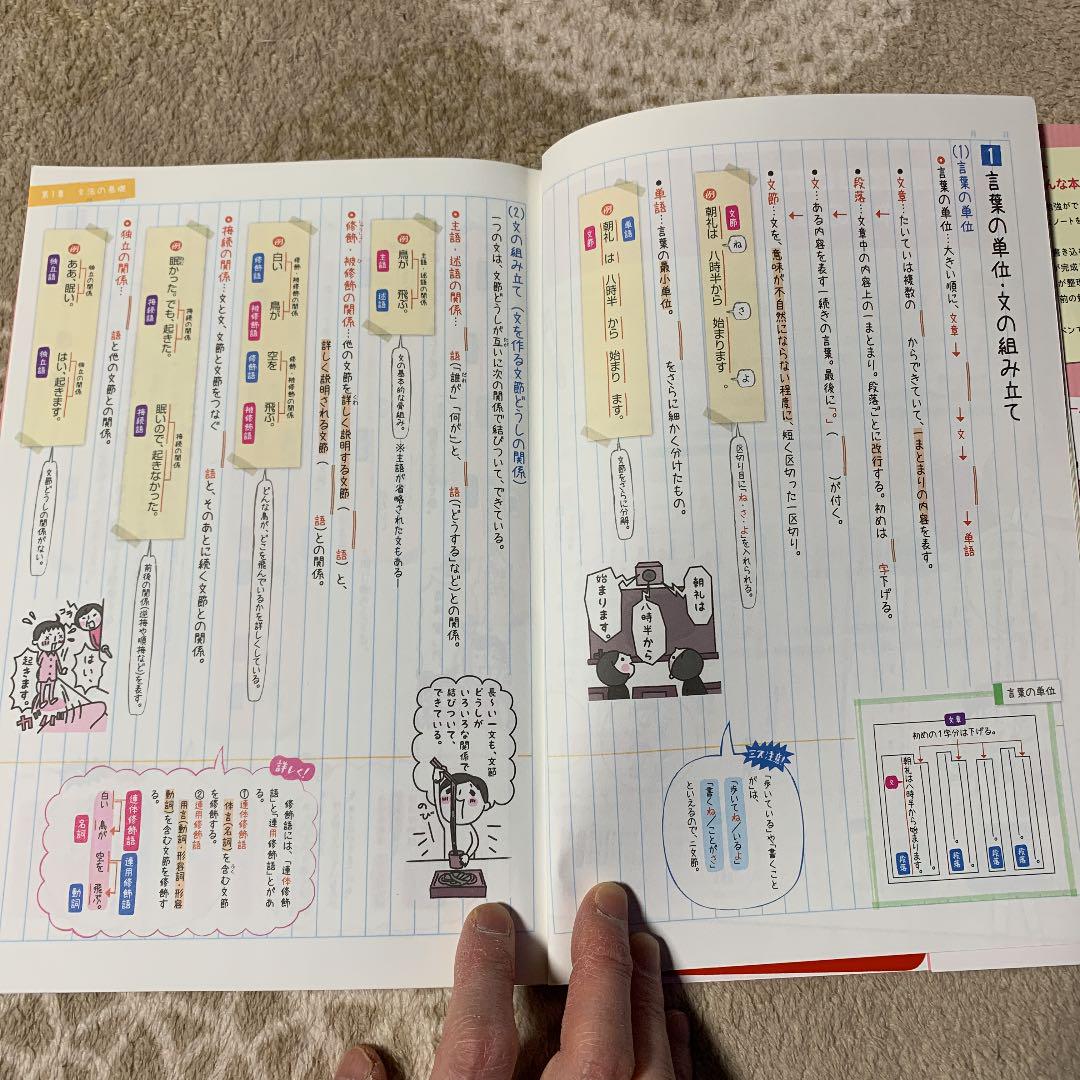 月 日
1 言葉の単位・文の組み立て
(1)言葉の単位
言葉の単位…大きい順に、文章→ → →文→ →単語
文章…たいていは複数の からできていて、一まとまりの内容を表す。
段落…文章中の内容上の一まとまり。段落ごとに改行する。初めは 字下げる。
文…ある内容を表す一続きの言葉。最後に「。」( )が付く。
文節…文を、意味が不自然にならない程度に、短く区切った一区切り。
例 文節
朝礼は 八時半から 始まります。
ね さ よ
区切り目に「ね・さ・よ」を入れられる。
単語…言葉の最小単位。 をさらに細かく分けたもの。
例 単語
朝礼 は 八時半 から 始まり ます。
文節
文節をさらに分解。
朝礼は
八時半から
始まります。
言葉の単位
文章
初めの1字分は下げる。
文
朝礼は八時半から始まります。
段落
段落
段落
段落
ミス注意!
「歩いている」や、「書くこと
が」は、
「歩いてね/いるよ」
「書くね/ことがさ」
といえるので、二文節。
第1章 文法の基礎
(2)文の組み立て(文を作る文節どうしの関係)
一つの文は、文節どうしが互いに次の関係で結びついて、できている。
主語・述語の関係… 語(「誰が」「何が」)と、 語(「どうする」など)との関係。
例 主語・述語の関係
鳥が 飛ぶ。
主語 述語
文の基本的な骨組み。
※主語が省略された文もある
修飾・被修飾の関係…他の文節を詳しく説明する文節( 語)と、
詳しく説明される文節( 語)との関係。
例 修飾・被修飾の関係 修飾・被修飾の関係
白い 鳥が 空を 飛ぶ。
修飾語 被修飾語 修飾語 被修飾語
どんな鳥が、どこを飛んでいるかを詳しくしている。
接続の関係…文と文、文節と文節をつなぐ 語と、そのあとに続く文節との関係。
例 接続の関係 接続の関係
眠かった。でも、起きた。 眠いので、起きなかった。
接続語 接続語
前後の関係(逆接や順接など)を表す。
独立の関係… 語と他の文節との関係。
例 独立の関係 独立の関係
ああ、眠い。 はい、起きます。
独立語 独立語
文節どうしの関係がない。
長〜い一文も、文節
どうしが
いろいろな関係で
結びついて、
できている。
のび〜
コラ〜
はい、
起きます。
ガバッ
詳しく!
修飾語には、「連体修飾
語」と「連用修飾語」とがあ
る。
①連体修飾語
体言(名詞)を含む文節
を修飾する。
②連用修飾語
用言(動詞・形容詞・形容
動詞)を含む文節を修飾す
る。
連体修飾語 連用修飾語
白い 鳥が 空を 飛ぶ。
名詞 動詞
んな本